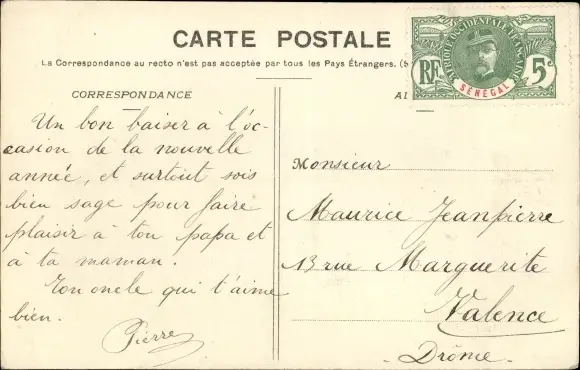 CARTE POSTALE
La Correspondance au recto n'est pas acceptée par tous les Pays Étrangers.
AFRIQUE OCCIDENTALE FRANÇAISE
RF
5c
SÉNÉGAL
CORRESPONDANCE
Un bon baiser à l'oc-
casion de la nouvelle
année, et surtout sois
bien sage pour faire
plaisir à ton papa et
à ta maman.
Ton oncle qui t'aime
bien.
Pierre
Monsieur
Maurice Jeanpierre
13 rue Marguerite
Valence
- Drôme -